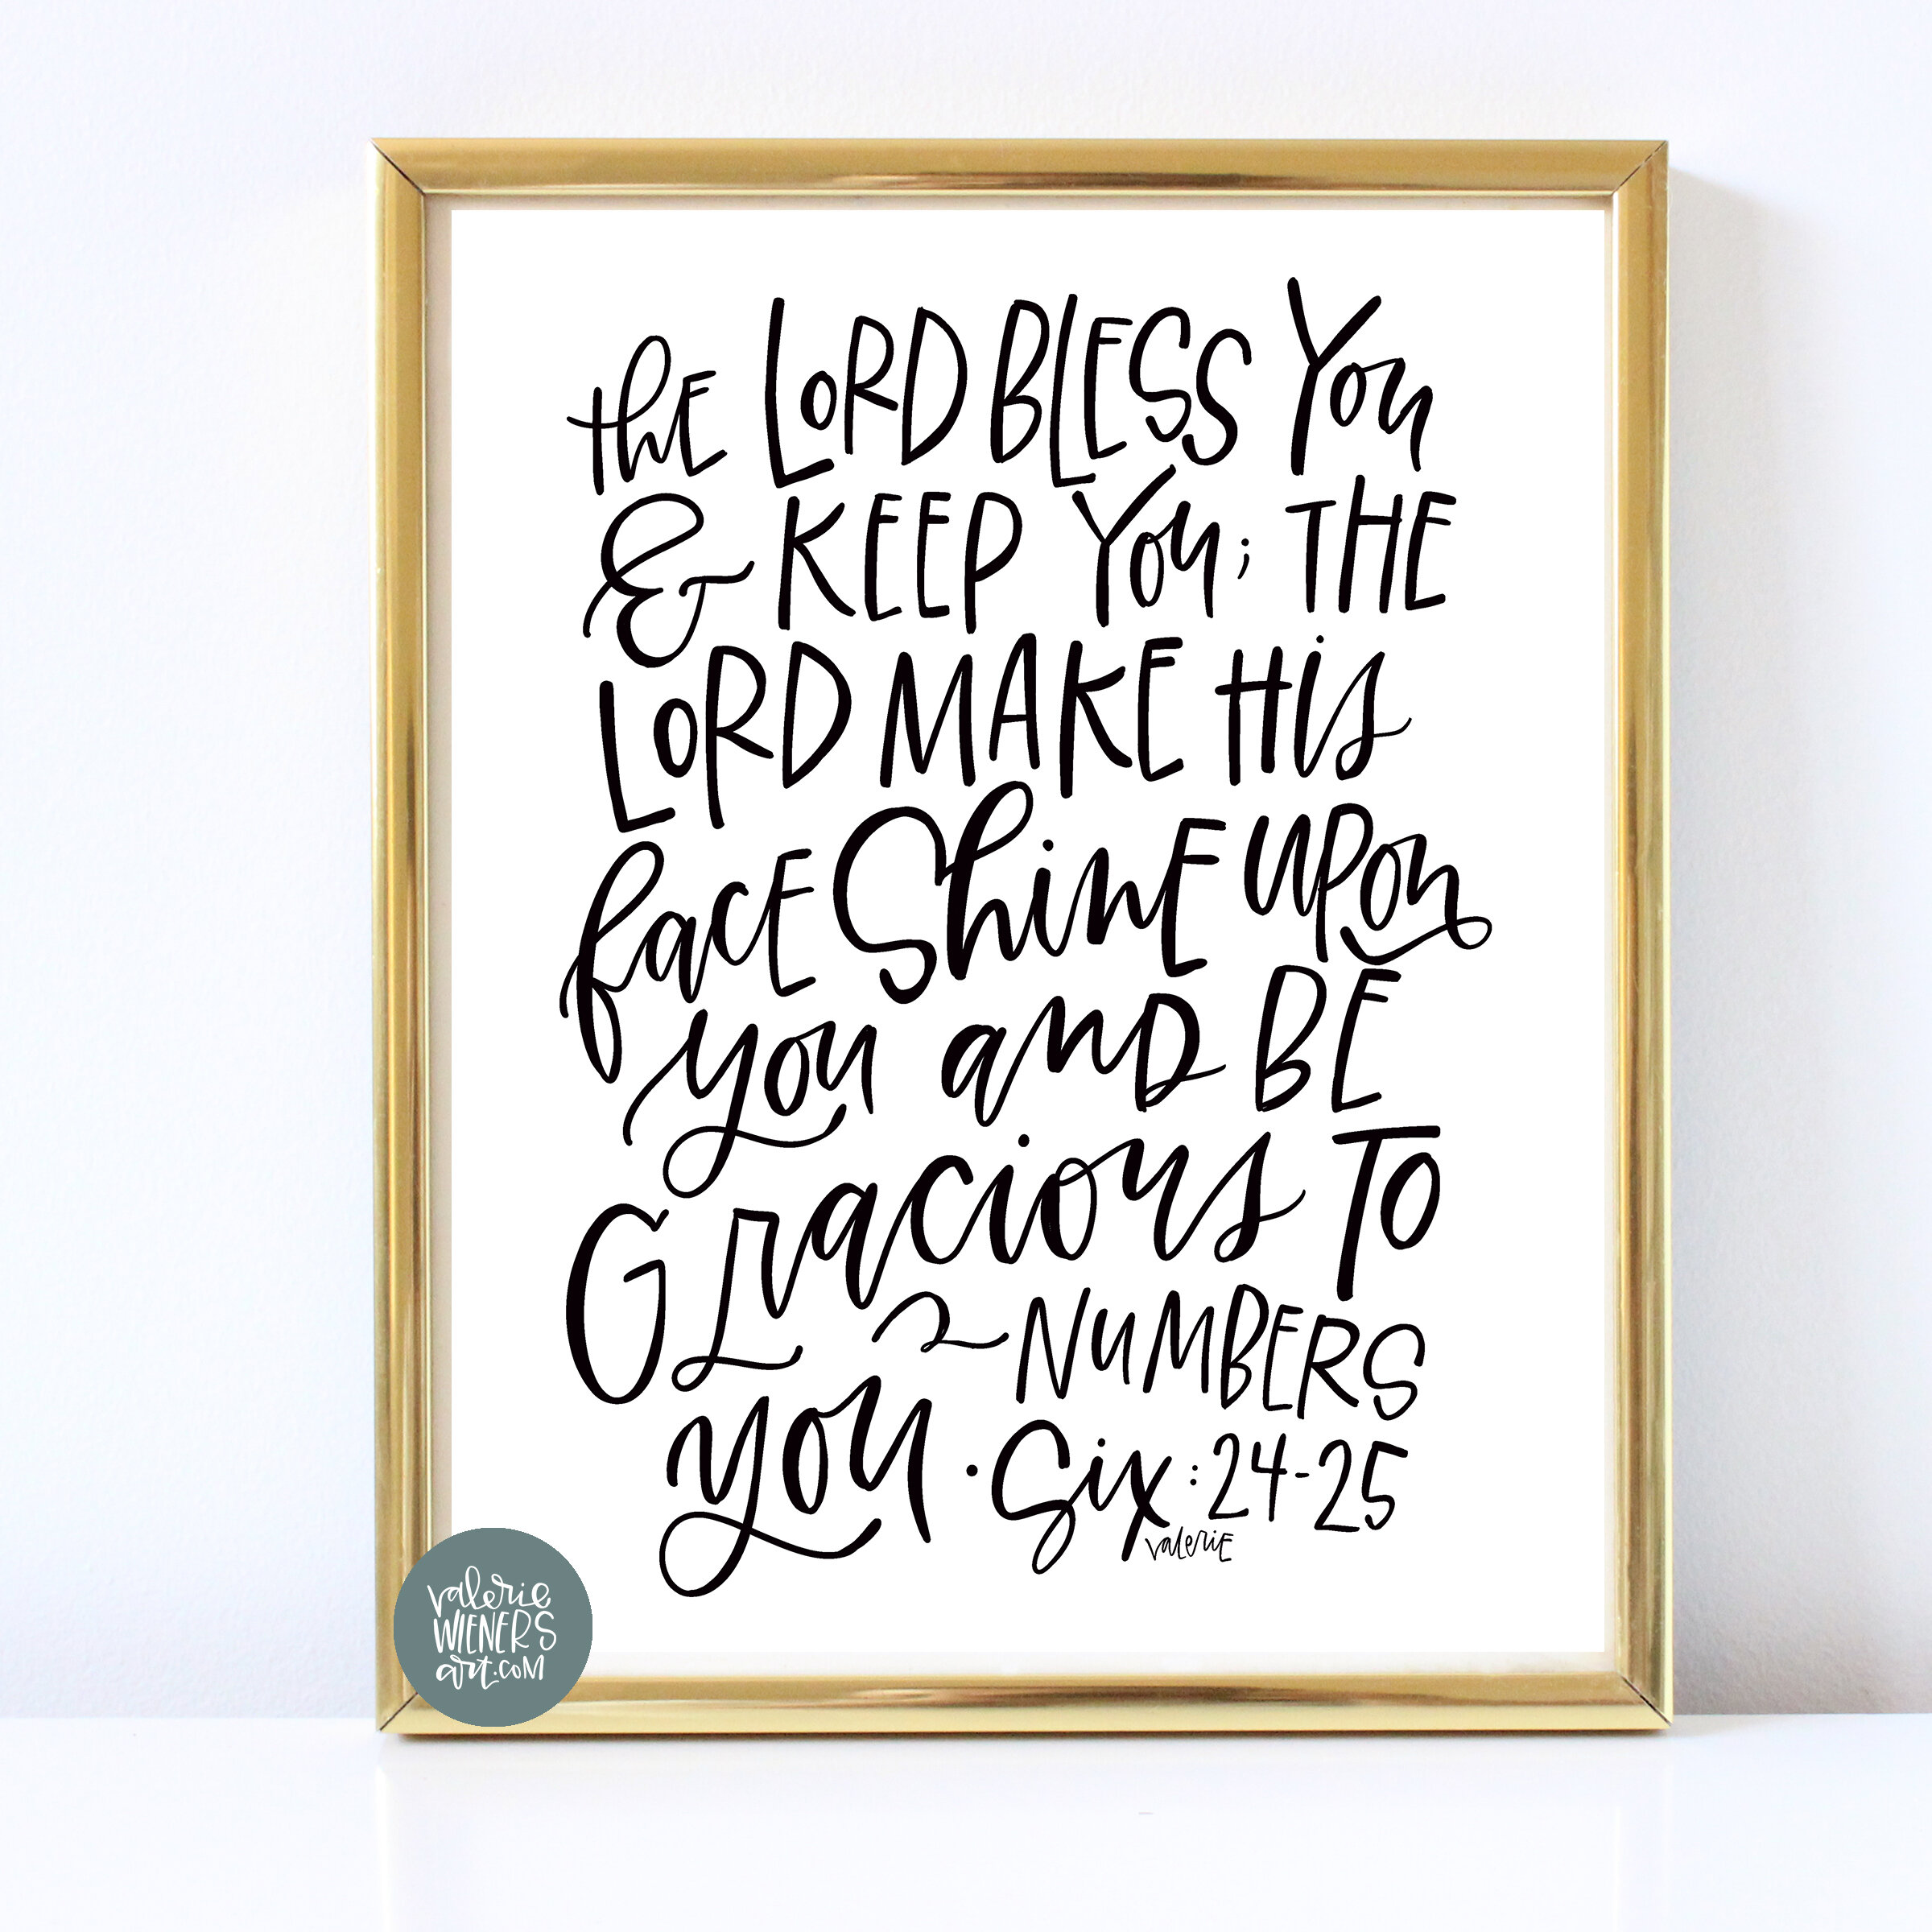 the LORD BLESS You
& KEEP You; THE
LORD MAKE His
face Shine upon
you and BE
Gracious TO
you
~ NUMBERS
· Six: 24-25
valerie
valerie
WIENERS
art.com